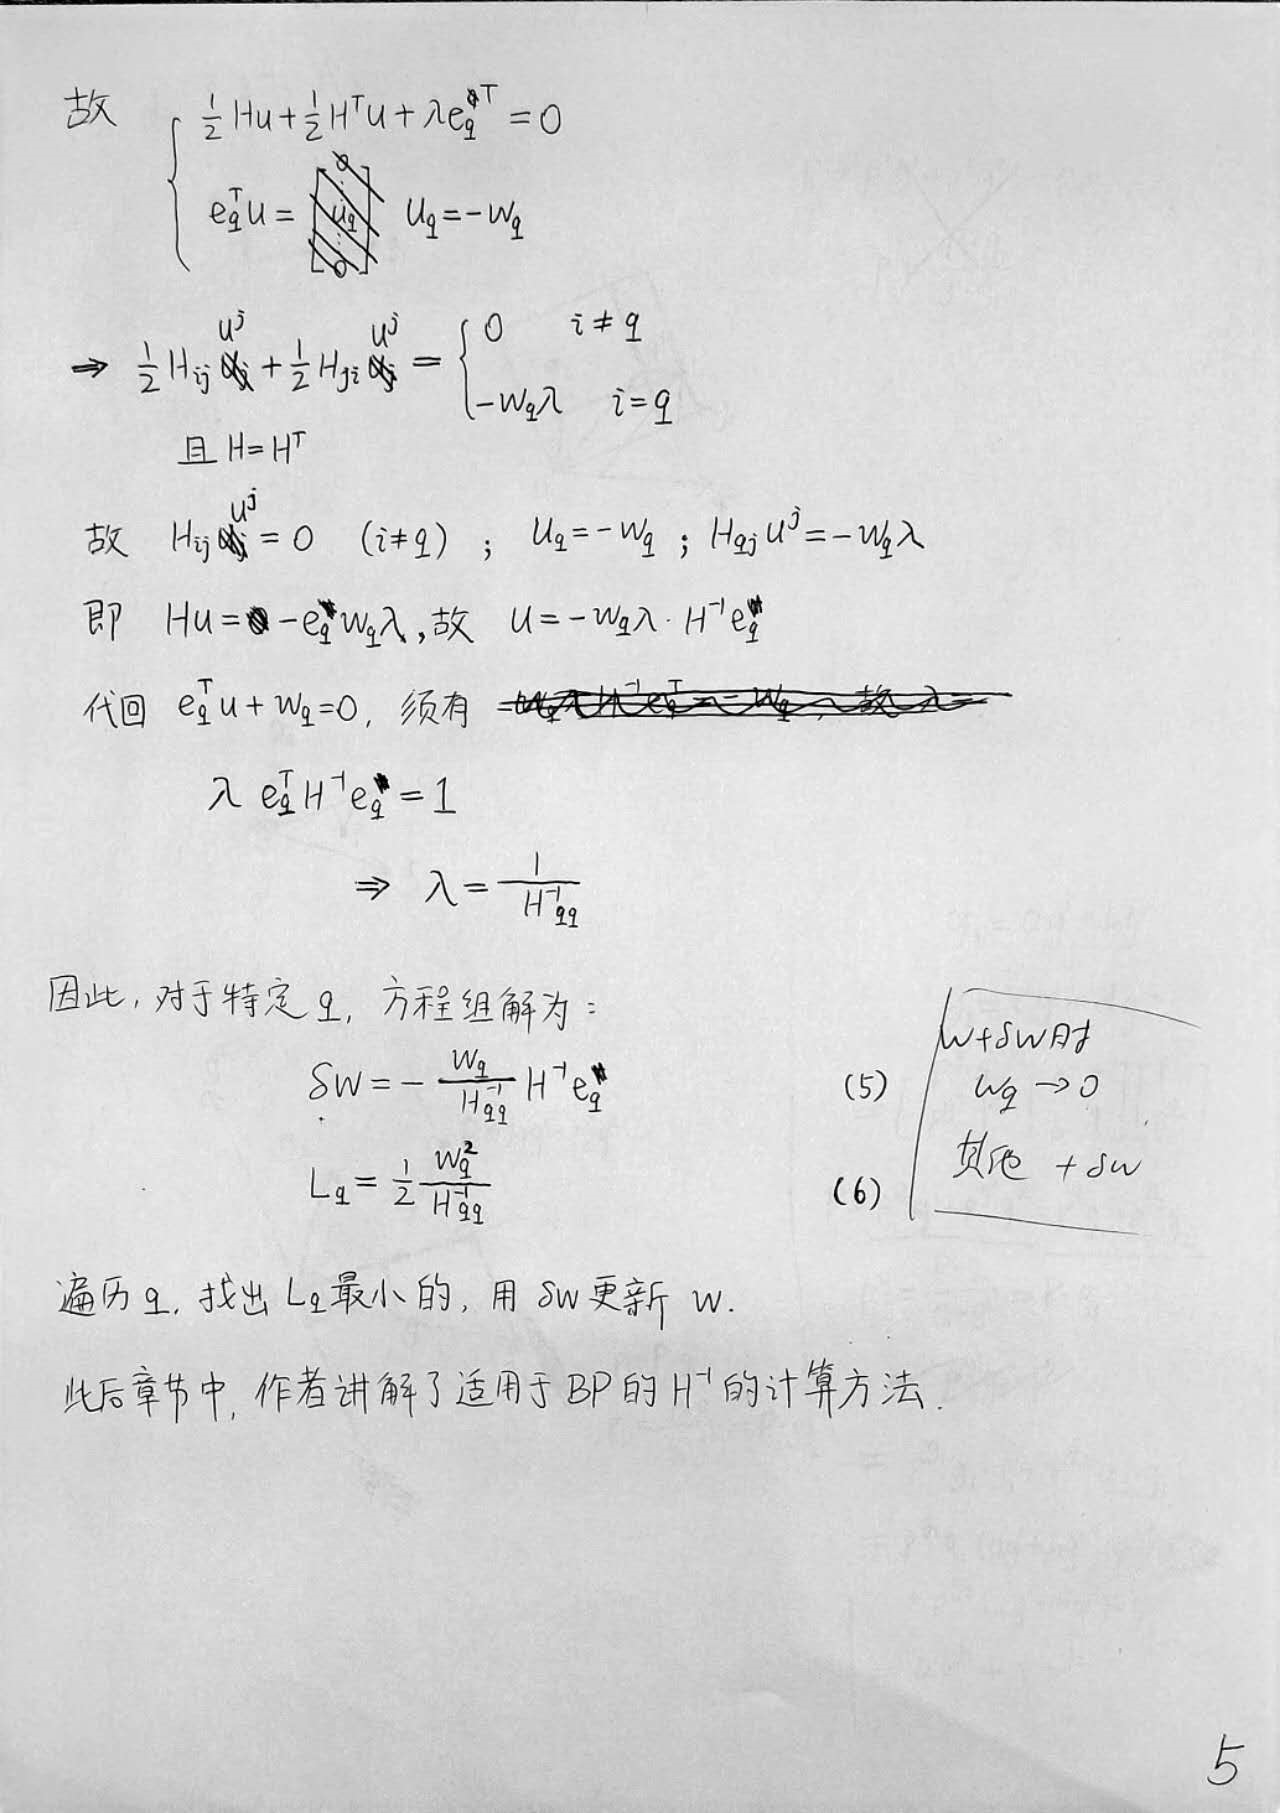 故 { ½Hu + ½HᵀU + λe_qᵀ = 0
e_qᵀu = U_q = -w_q
⇒ ½H_ij u^j + ½H_ji u^j = { 0 i≠q
-w_qλ i=q
且 H=Hᵀ
故 H_ij u^j = 0 (i≠q) ; U_q = -w_q ; H_qj u^j = -w_qλ
即 Hu = -e_q w_qλ, 故 U = -w_qλ · H⁻¹e_q
代回 e_qᵀu + w_q = 0, 须有
λ e_qᵀH⁻¹e_q = 1
⇒ λ = 1/H⁻¹_qq
因此, 对于特定 q, 方程组解为:
δw = -(w_q/H⁻¹_qq) H⁻¹e_q (5)
L_q = ½ w_q²/H⁻¹_qq (6)
w+δw时
w_q → 0
其他 + δw
遍历 q, 找出 L_q 最小的, 用 δw 更新 w.
此后章节中, 作者讲解了适用于 BP 的 H⁻¹ 的计算方法.
5